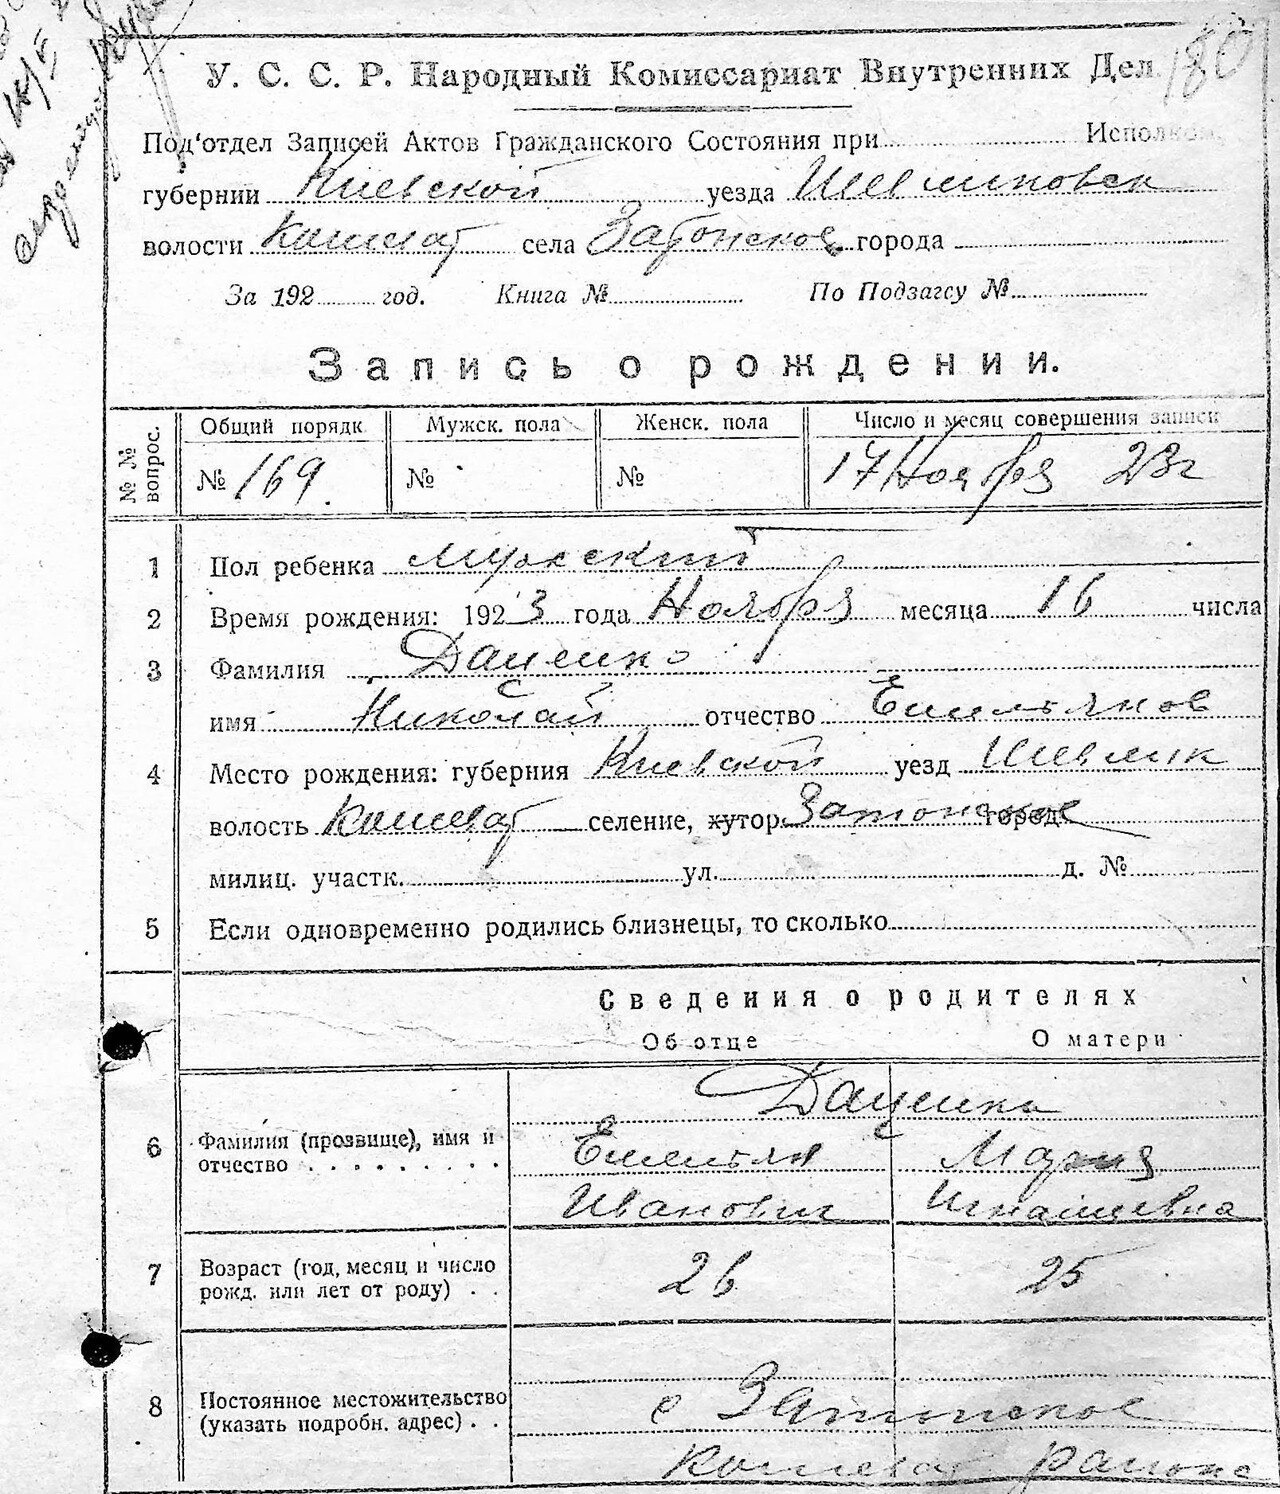 180
У. С. С. Р. Народный Комиссариат Внутренних Дел.
Под'отдел Записей Актов Гражданского Состояния при Исполком.
губернии Киевской уезда Шевченковск
волости Кошеват села Затонское города
За 192 год. Книга № По Подзагсу №
Запись о рождении.
№№ вопрос.
Общий порядк. Мужск. пола Женск. пола Число и месяц совершения записи
№ 169. № № 17 Ноября 23 г
1 Пол ребенка мужский
2 Время рождения: 1923 года Ноября месяца 16 числа
3 Фамилия Даценко
имя Николай отчество Емильянов
4 Место рождения: губерния Киевской уезд
волость Кошеват селение, хутор Затонское город
милиц. участк. ул. д. №
5 Если одновременно родились близнецы, то сколько
Сведения о родителях
Об отце О матери
Даценко
6 Фамилия (прозвище), имя и Емельян Мария
отчество . . . . . . . . . Иванович Игнатьевна
7 Возраст (год, месяц и число 26 25
рожд. или лет от роду) . .
8 Постоянное местожительство с Затонское
(указать подробн. адрес) . . Кошеват района